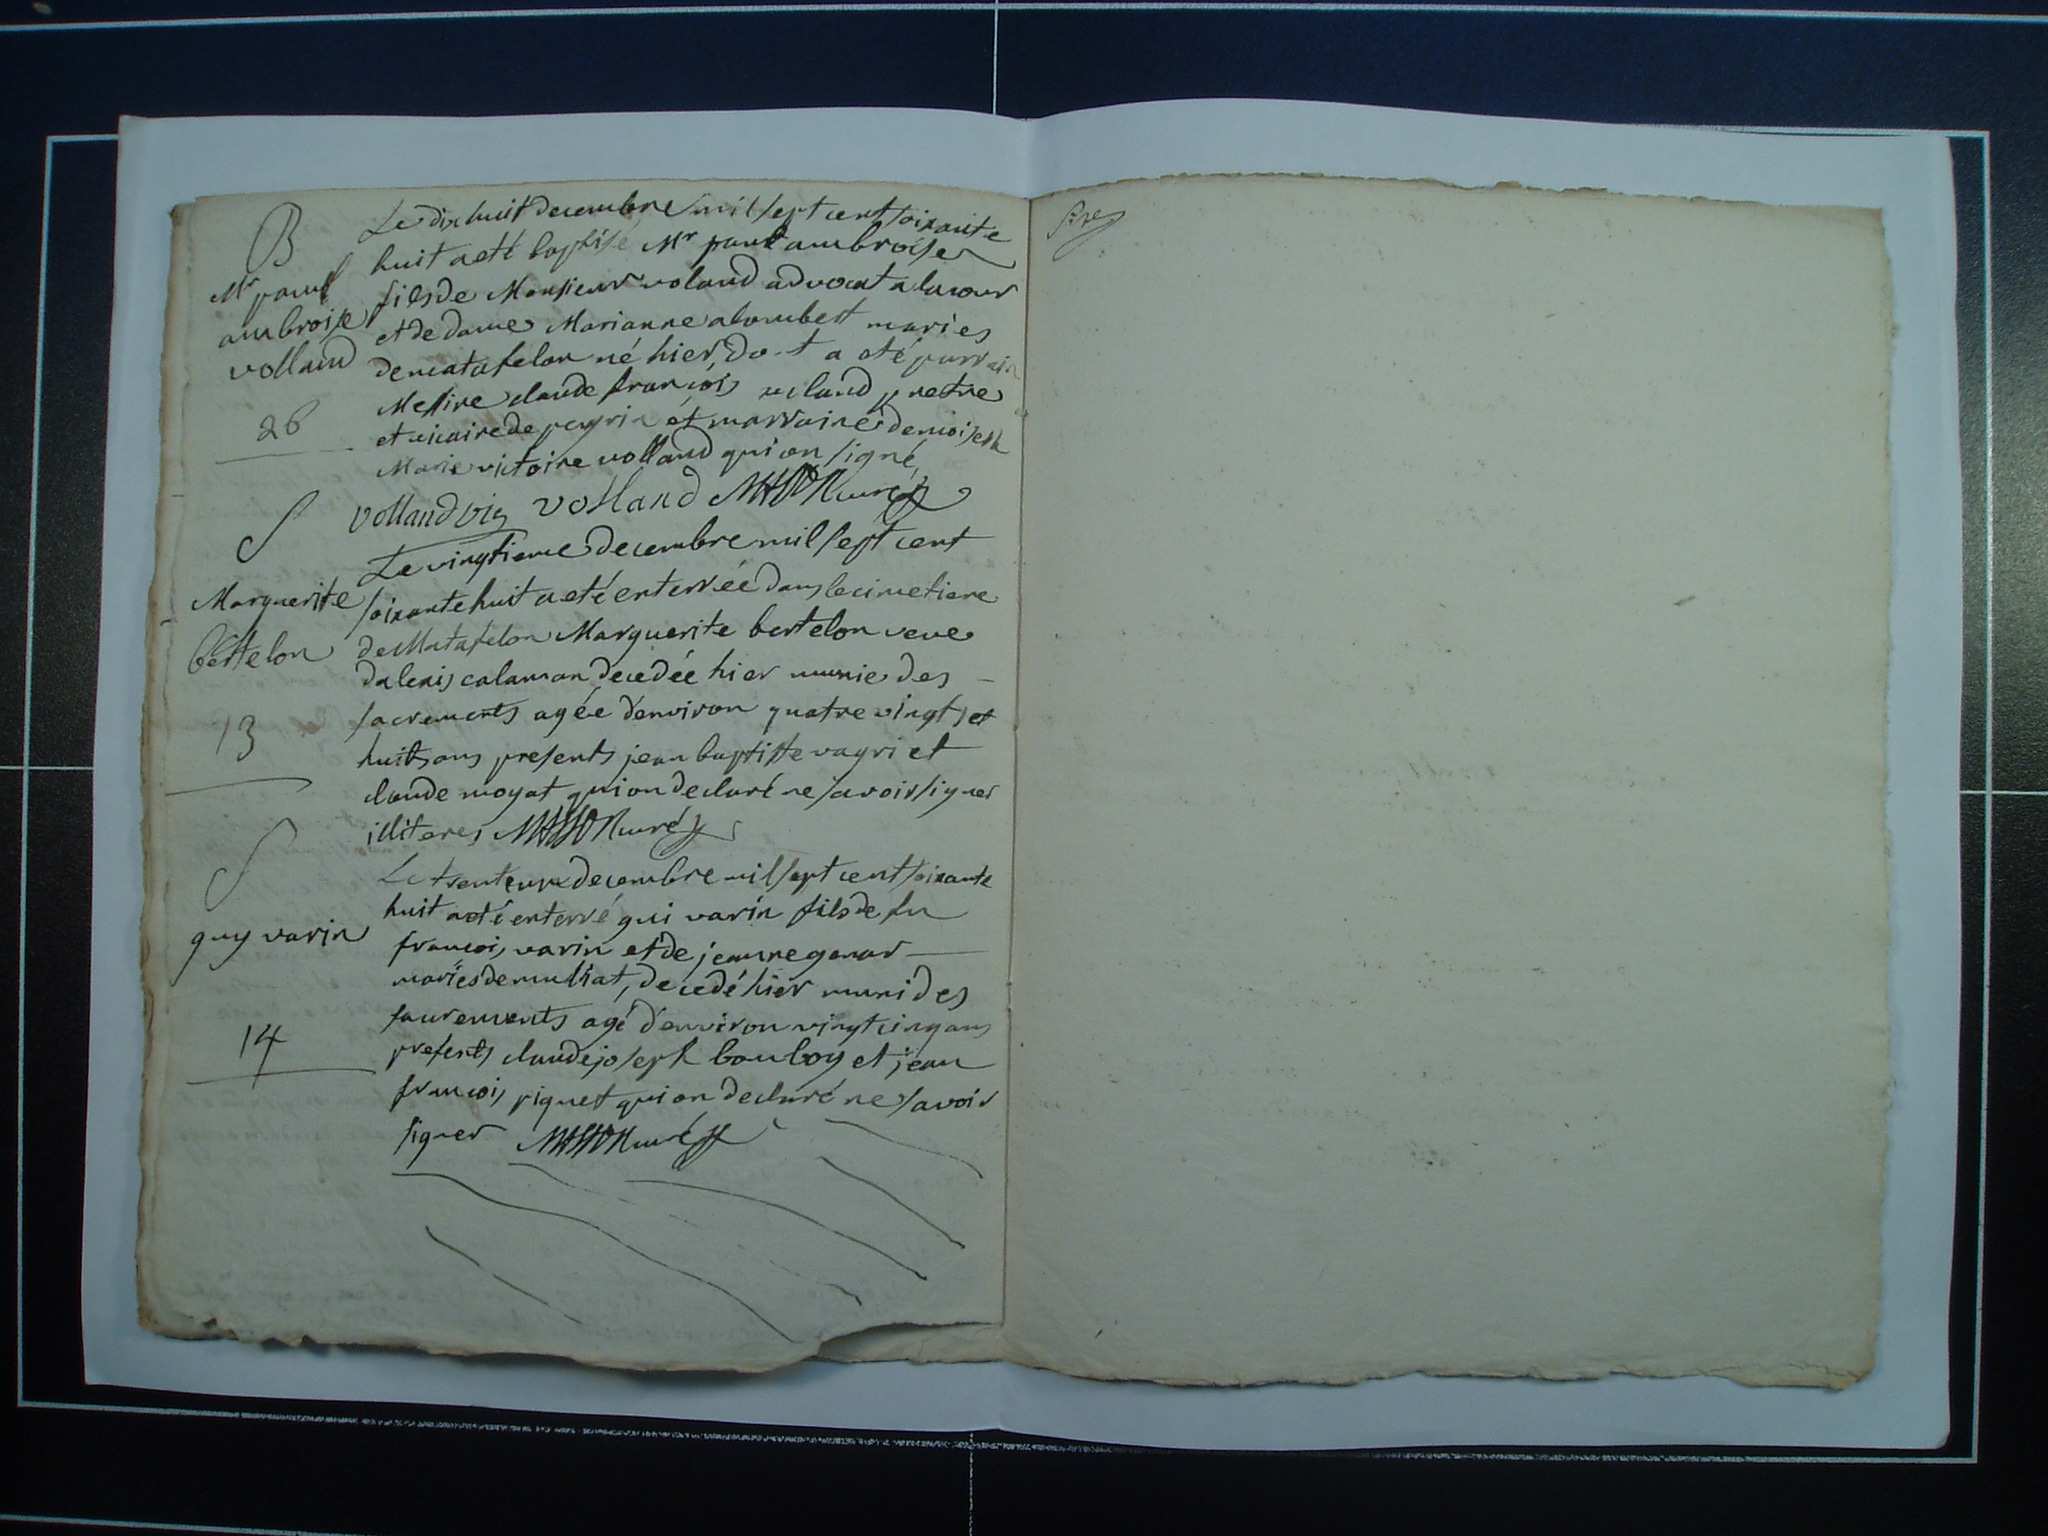 B
Mr paul
ambroise
volland
26
Le dix huit decembre mil sept cent soixante
huit a eté baptisé Mr paul ambroise
fils de Monsieur voland advocat a la cour
et de dame Marianne alombert maries
de matafelon né hier, dont a eté parrain
Messire claude françois voland pretre
et vicaire de peyria et marraine demoiselle
Marie victoire volland qui on signé
vollandvic volland MASSON curé
S
Marguerite
bertelon
13
Le vingtieme decembre mil sept cent
soixante huit a eté enterrée dans le cimetiere
de Matafelon Marguerite bertelon veve
dalexis calamon decedée hier munie des
sacrements agée d'environ quatre vingts et
huits ans presents jean baptiste vagri et
claude moyat qui on declaré ne savoir signer
illiteres MASSON curé
S
guy varin
14
Le trenteun decembre mil sept cent soixante
huit a eté enterré gui varin fils de fu
françois varin et de jeanne genar
mariés de muliat, decedé hier muni des
sacrements agé d'environ vingt cinq ans
presents claude joseph bouboy et jean
francois piquet qui on declaré ne savoir
signer MASSON curé